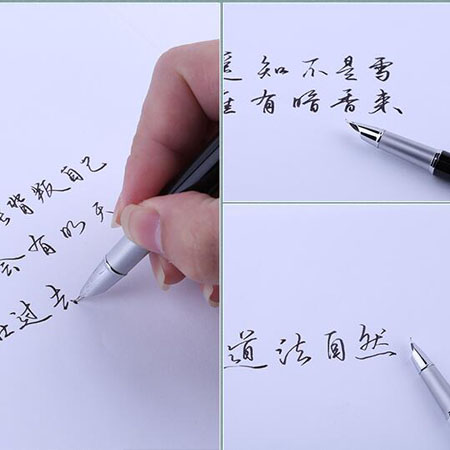 背叛自己
会有明天
在过去
遥知不是雪
唯有暗香来
道法自然